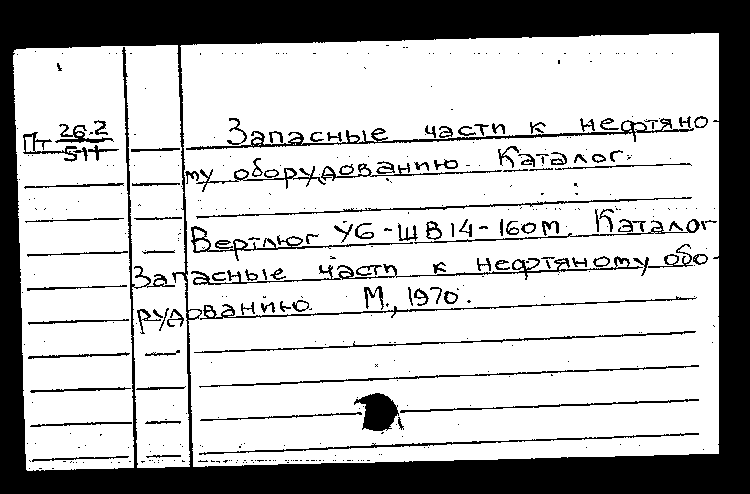 Пт 26.2
511
Запасные части к нефтяно-
му оборудованию. Каталог.
Вертлюг У6-ШВ14-160М. Каталог
Запасные части к нефтяному обо-
рудованию М., 1970.